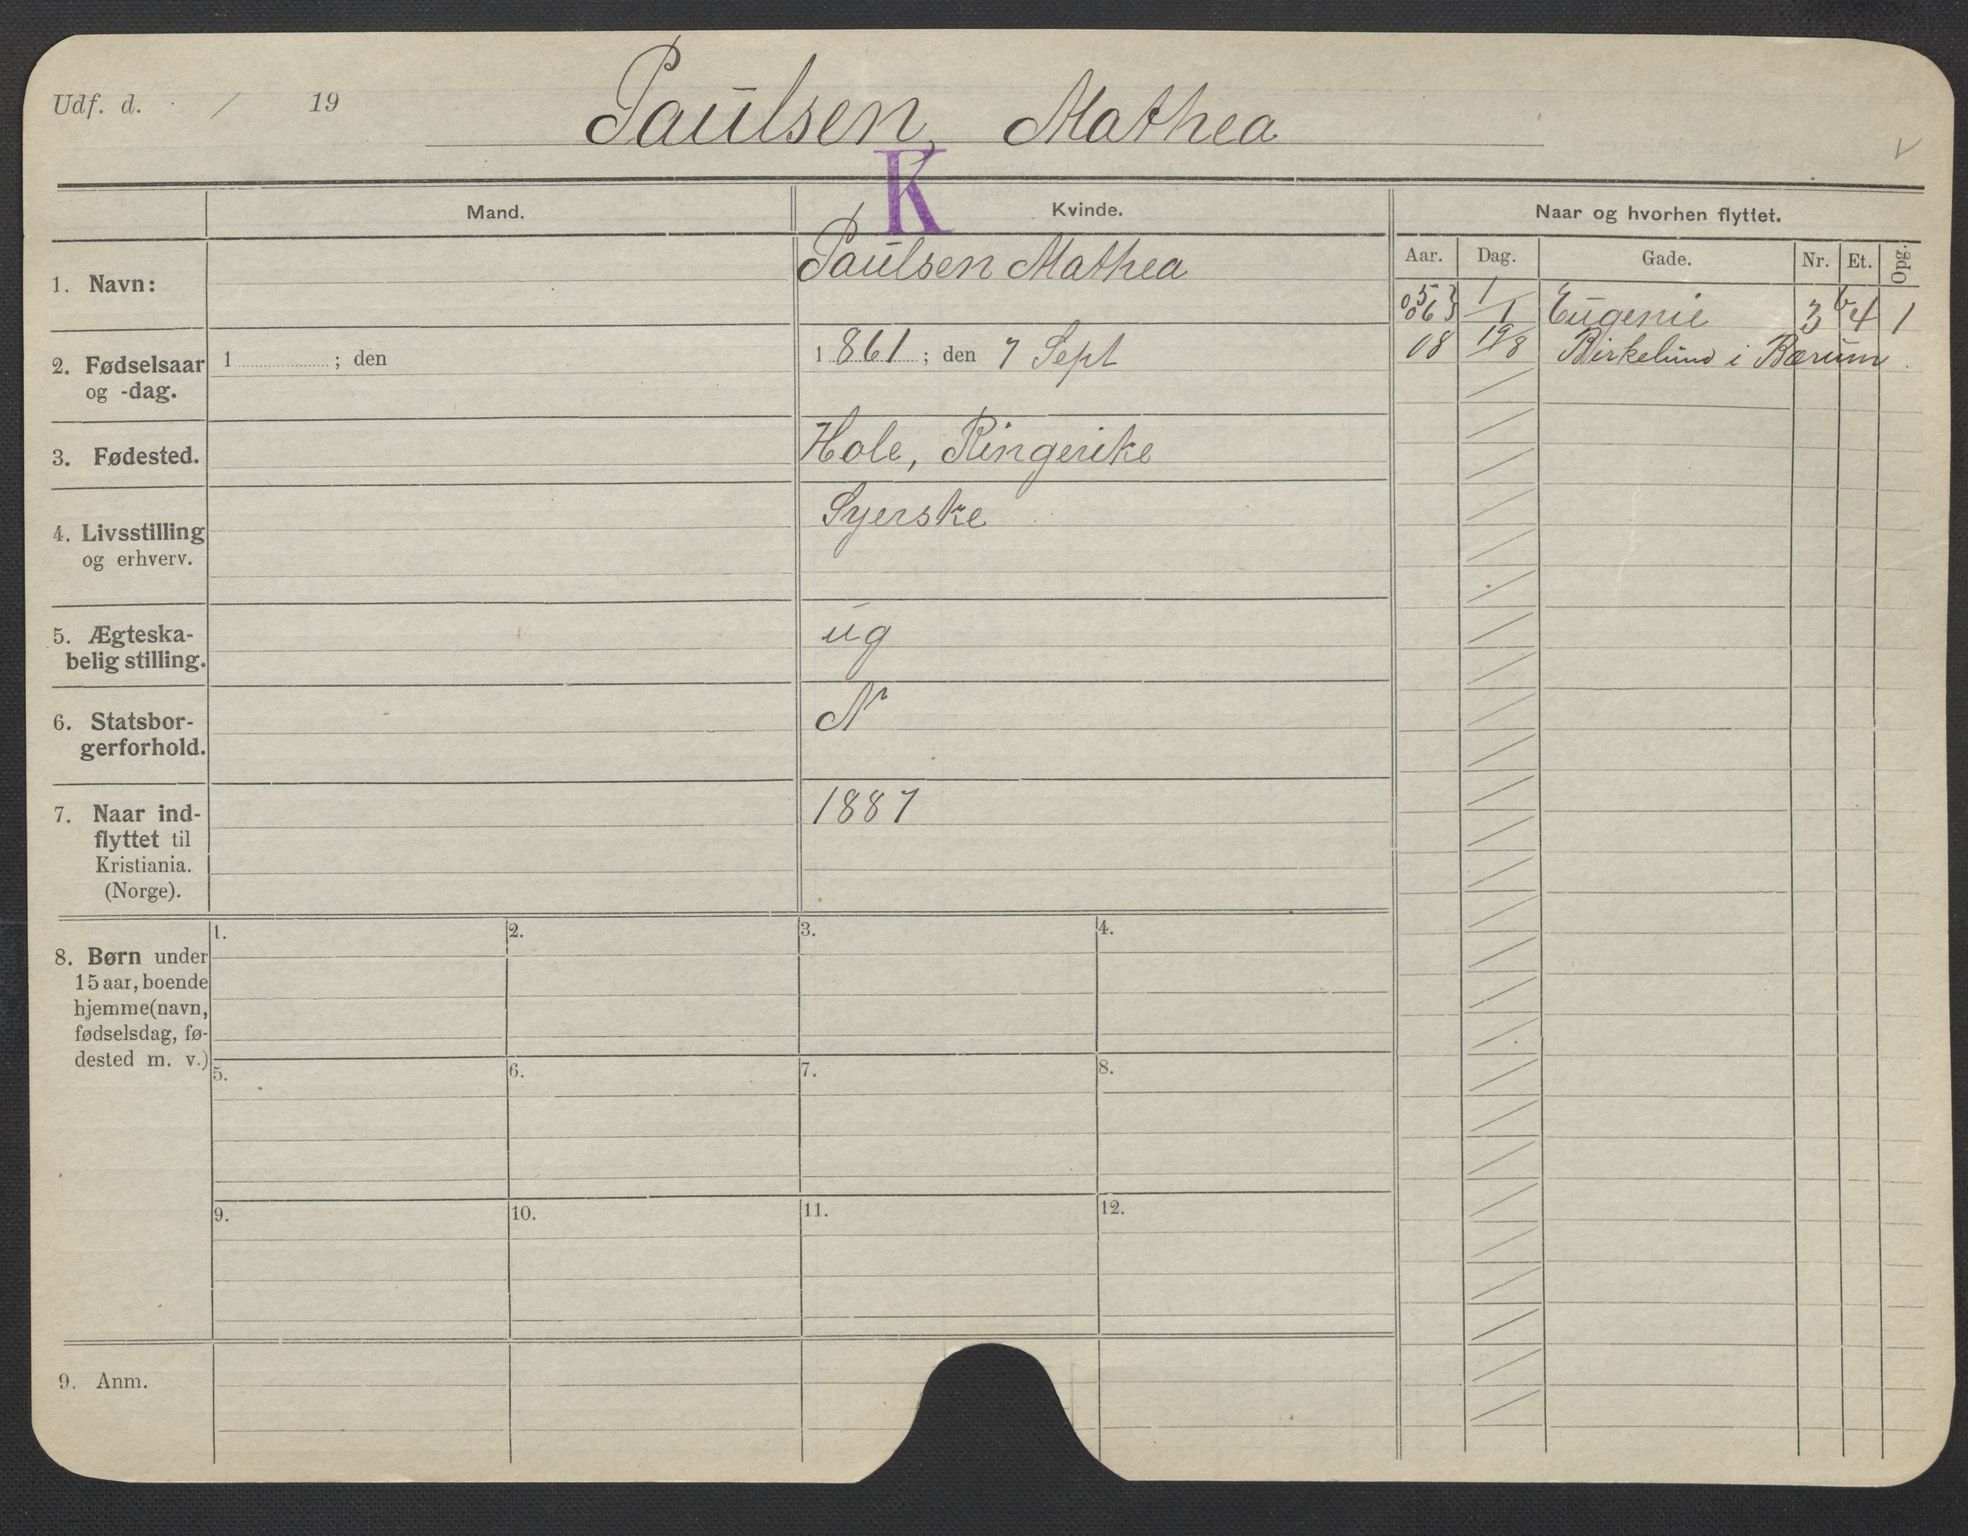 Udf. d. / 19
Paulsen, Mathea
K
Mand.
Kvinde.
Naar og hvorhen flyttet.
Aar. Dag. Gade. Nr. Et. Opg.
1. Navn:
Paulsen Mathea
05 } 1/1 Eugenie 3b 4 1
06 }
08 19/8 Birkelund i Bærum
2. Fødselsaar
og -dag.
1 ; den
1 861 ; den 7 Sept
3. Fødested.
Hole, Ringerike
4. Livsstilling
og erhverv.
Syerske
5. Ægteska-
belig stilling.
ug
6. Statsbor-
gerforhold.
N
7. Naar ind-
flyttet til
Kristiania.
(Norge).
1887
8. Børn under
15 aar, boende
hjemme (navn,
fødselsdag, fø-
dested m. v.)
1. 2. 3. 4.
5. 6. 7. 8.
9. 10. 11. 12.
9. Anm.